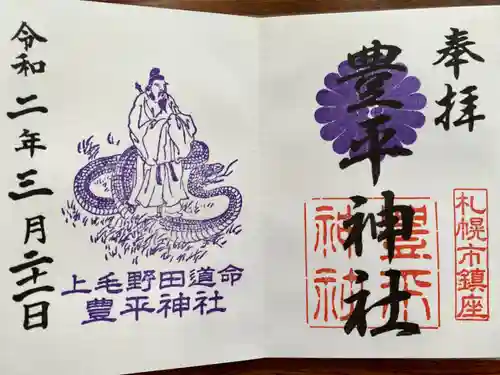 奉拝
札幌市鎮座
豊平神社
豊平
神社
上毛野田道命
豊平神社
令和二年三月二十一日